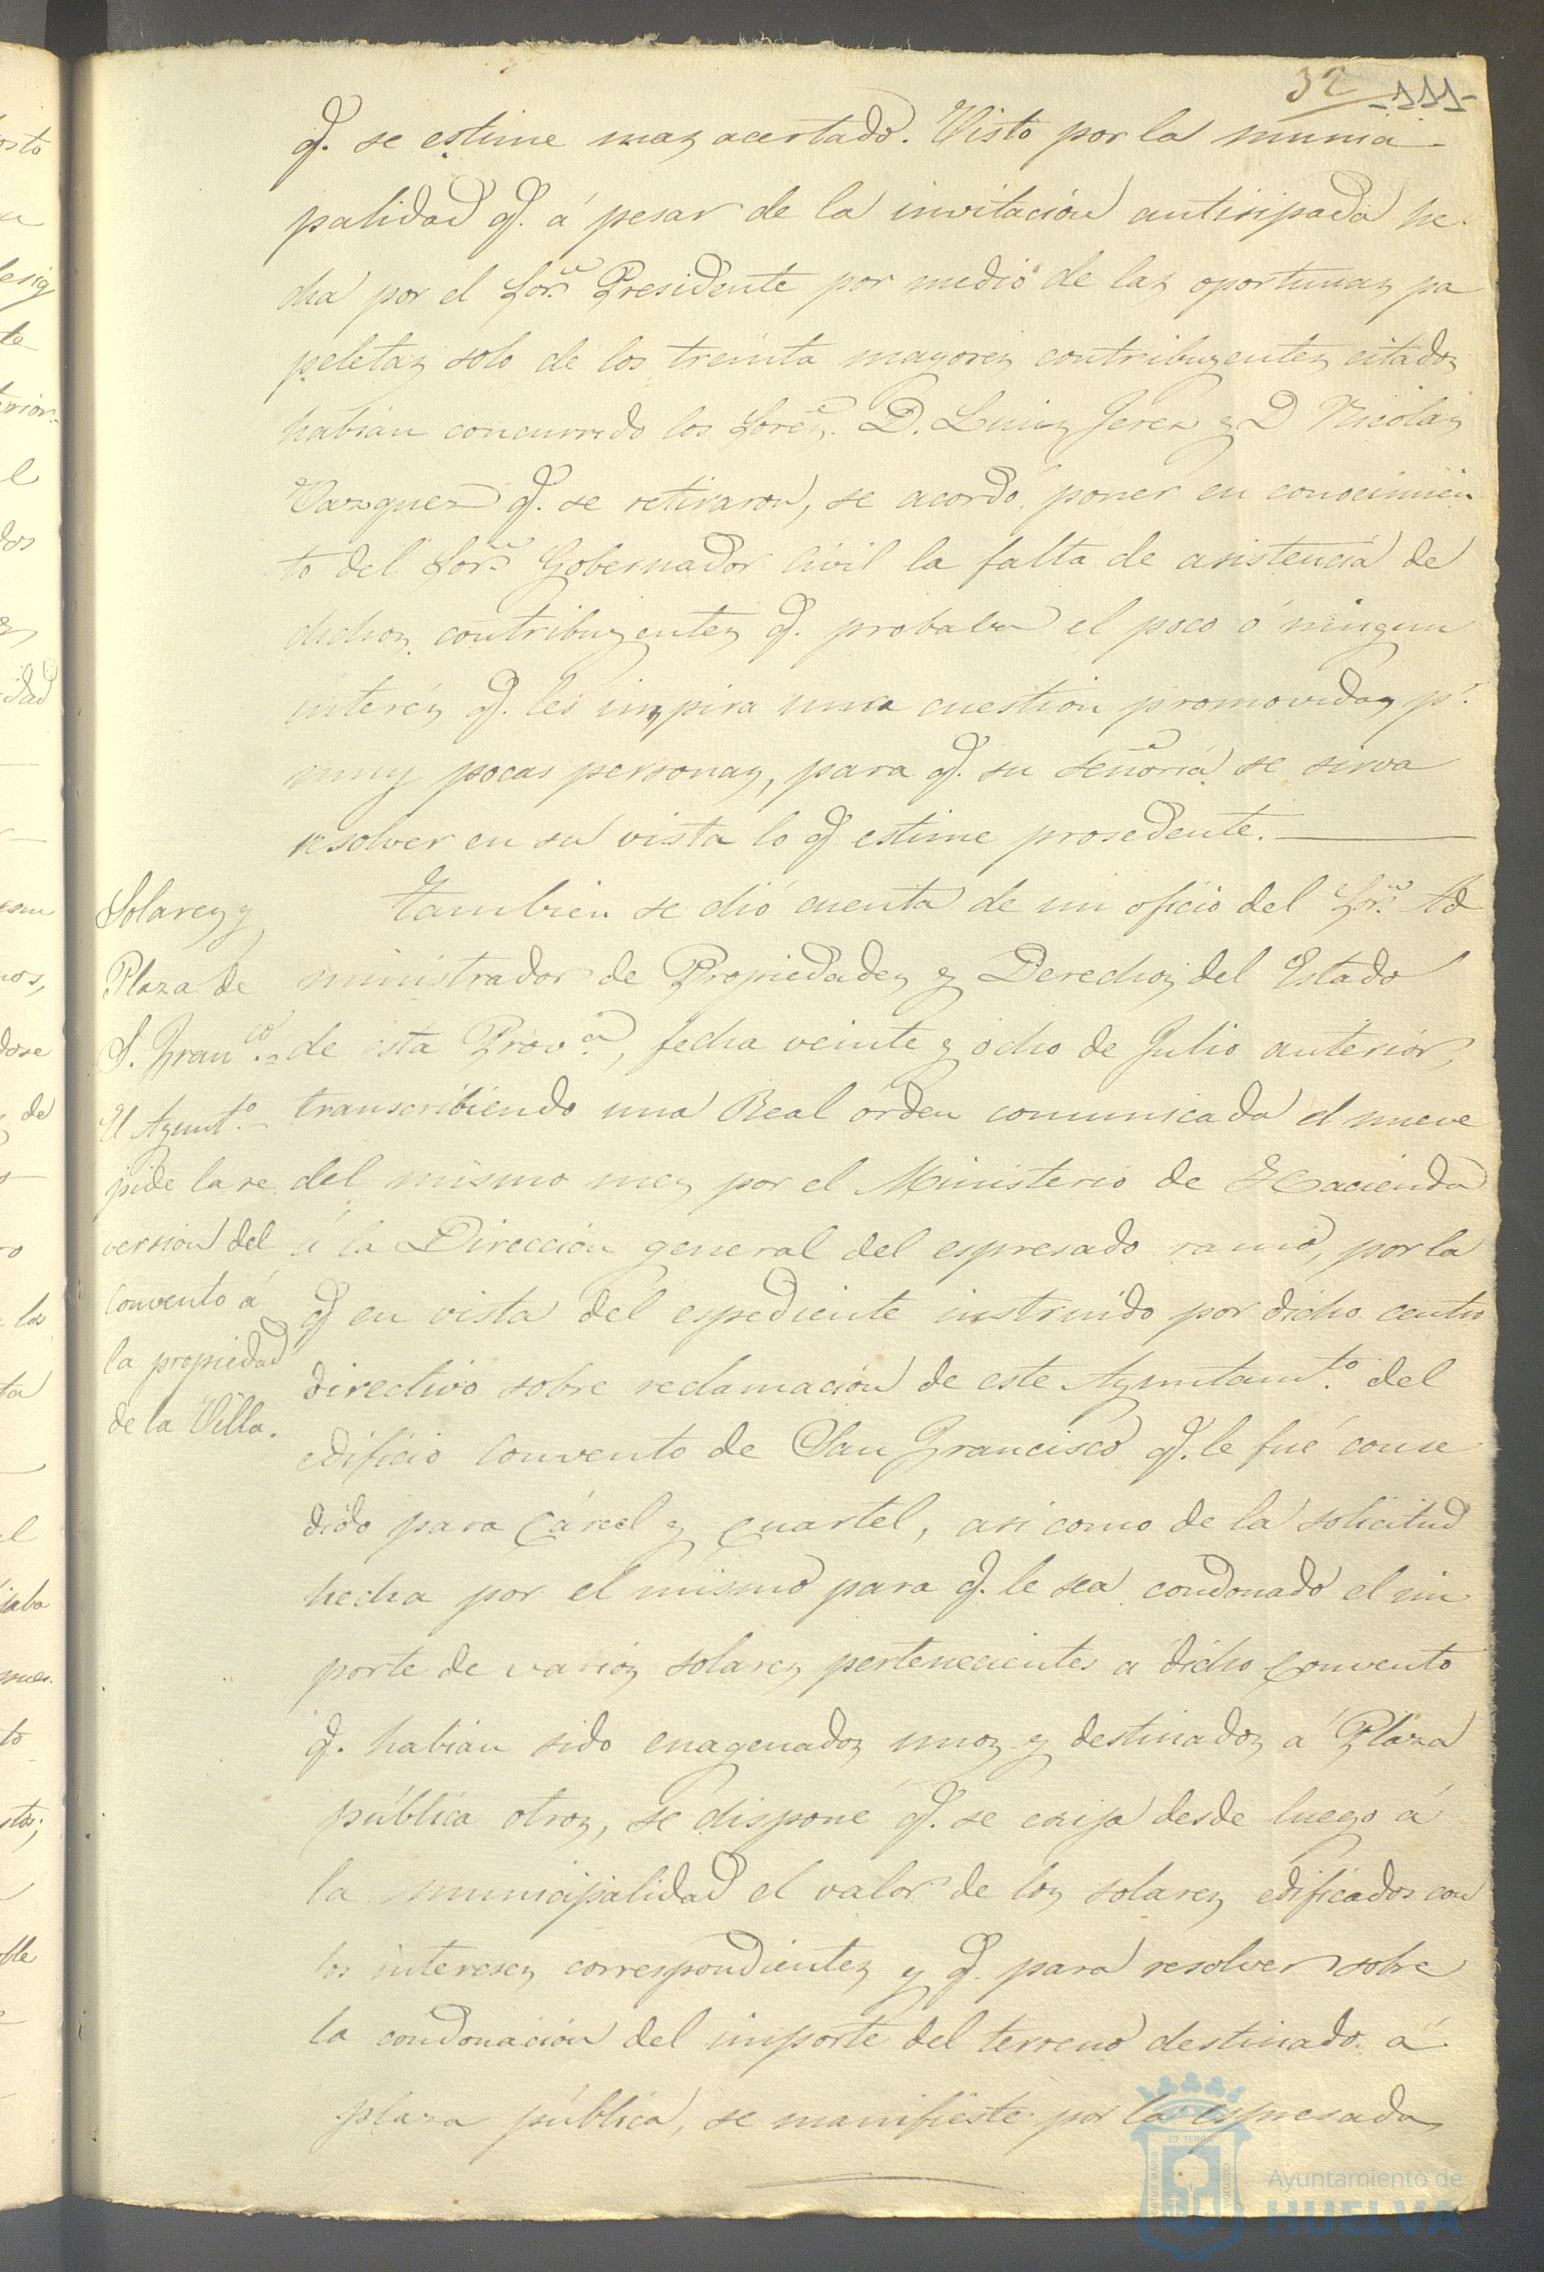 32 -111-
q. se estime mas acertado. Visto por la munici-
palidad q. á pesar de la invitación antisipada he-
cha por el Sor. Presidente por medio de las oportunas pa
peletas solo de los treinta mayores contribuyentes citados
habian concurrido los Sores. D. Luis Jerez y D Nicolas
Vazquez q. se retiraron, se acordó poner en conocimien
to del Sor. Gobernador Civil la falta de asistencia de
dichos contribuyentes q. probaba el poco ó ningun
interés q. les inspira una cuestion promovida pr.
muy pocas personas, para q. su señoría se sirva
resolver en su vista lo q estime prosedente.
Solares y
Plaza de
S. Franco.
El Ayuntº.
pide la re
version del
Convento á
la propiedad
de la Villa.
Tambien se dió cuenta de un oficio del Sor. Ad
ministrador de Propiedades y Derechos del Estado
de esta Prova., fecha veinte y ocho de Julio anterior,
transcribiendo una Real órden comunicada el nueve
del mismo mes por el Ministerio de Hacienda
á la Dirección general del espresado ramo, por la
q en vista del espediente instruido por dicho centro
directivo sobre reclamación de este Ayuntamto. del
edificio Convento de San Francisco q. le fué conse
dido para Cárcel y Cuartel, asi como de la solicitud
hecha por el mismo para q. le sea condonado el im
porte de varios solares pertenecientes a dicho Convento
q. habian sido enagenados unos y destinados á Plaza
pública otros, se dispone q. se exija desde luego á
la municipalidad el valor de los solares edificados con
los intereses correspondientes y q. para resolver sobre
la condonación del importe del terreno destinado á
plaza pública, se manifieste por la espresada
Ayuntamiento de
HUELVA